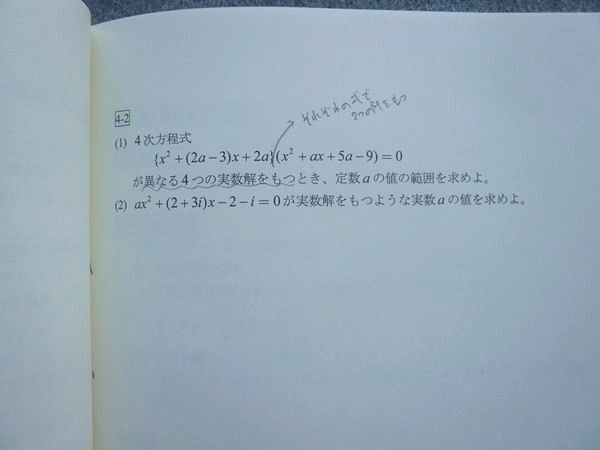 4-2
それぞれの式で
2つの解をもつ
(1) 4次方程式
{x²+(2a−3)x+2a}(x²+ax+5a−9)=0
が異なる4つの実数解をもつとき、定数aの値の範囲を求めよ。
(2) ax²+(2+3i)x−2−i=0が実数解をもつような実数aの値を求めよ。